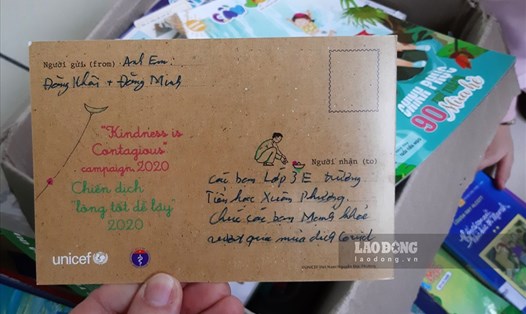 Người gửi (from) Anh Em:
Đăng Khải + Đăng Minh
"Kindness is
Contagious"
campaign, 2020
Chiến dịch
"lòng tốt dễ lây"
2020
Người nhận (to)
các bạn Lớp 3E trường
Tiểu học Xuân Phương.
Chúc các bạn Mạnh khỏe
vượt qua mùa dịch Covid
unicef
CHINH PHỤC
90
LAO ĐỘNG
laodong.vn